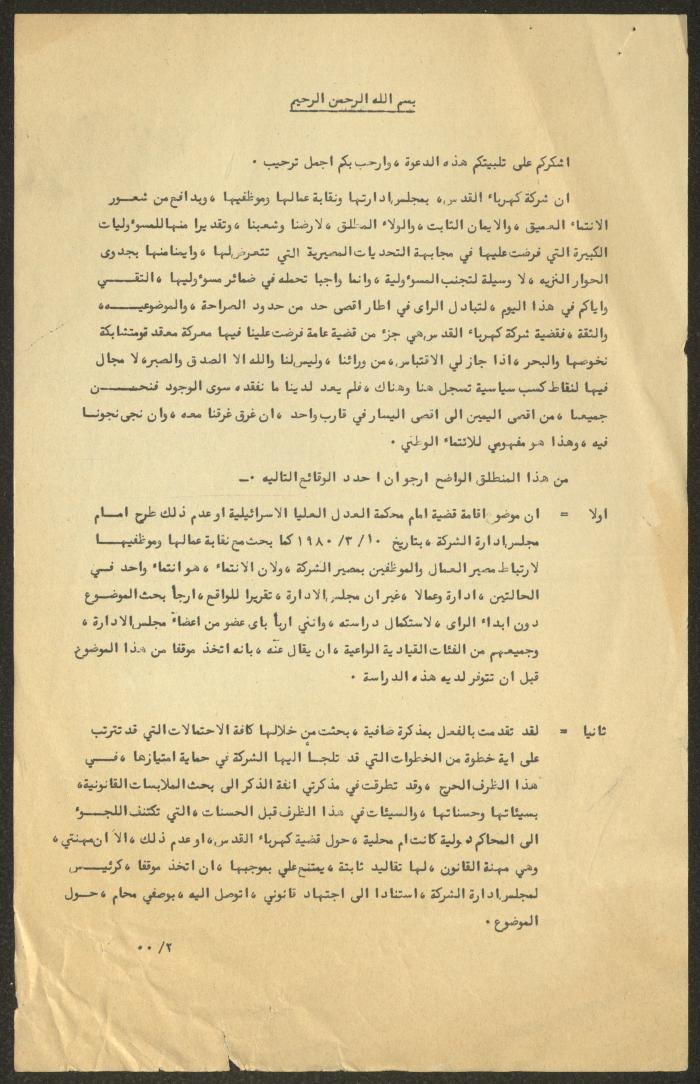 بسم الله الرحمن الرحيم
اشكركم على تلبيتكم هذه الدعوة ، وارحب بكم اجمل ترحيب .
ان شركة كهرباء القدس ، بمجلس ادارتها ونقابة عمالها وموظفيها ، وبدافع من شعور
الانتماء العميق ، والايمان الثابت ، والولاء المطلق ، لارضنا وشعبنا ، وتقديرا منها للمسؤوليات
الكبيرة التي فرضت عليها في مجابهة التحديات المصيرية التي تتعرض لها ، وايمنا منها بجدوى
الحوار النزيه ، لا وسيلة لتجنب المسؤولية ، وانما واجبا تحمله في ضمائر مسؤوليها ، التقي
واياكم في هذا اليوم ، لتبادل الراى في اطار اقصى حد من حدود الصراحة ، والموضوعيه ،
والثقة ، فقضية شركة كهرباء القدس هي جزء من قضية عامة فرضت علينا فيها معركة معقدة ومتشابكة
نخوضها والبحر ، اذا جاز لي الاقتباس ، من ورائنا ، وليس لنا والله الا الصدق والصبر ، لا مجال
فيها لنقاط كسب سياسية تسجل هنا وهناك ، فلم يعد لدينا ما نفقده سوى الوجود فنحن
جميعنا ، من اقصى اليمين الى اقصى اليسار في قارب واحد ، ان غرق غرقنا معه ، وان نجى نجونا
فيه ، وهذا هو مفهومي للانتماء الوطني .
من هذا المنطلق الواضح ارجو ان احدد الوقائع التاليه .-
اولا = ان موضوع اقامة قضية امام محكمة العدل العليا الاسرائيلية او عدم ذلك طرح امام
مجلس ادارة الشركة ، بتاريخ ١٠/٣/١٩٨٠ كما بحث مع نقابة عمالها وموظفيها
لارتباط مصير العمال والموظفين بمصير الشركة ، ولان الانتماء ، هو انتماء واحد في
الحالتين ، ادارة وعمالا ، غير ان مجلس الادارة ، تقريرا للواقع ، ارجأ بحث الموضوع
دون ابداء الراى ، لاستكمال دراسته ، وانني اربأ باى عضو من اعضاء مجلس الادارة ،
وجميعهم من الفئات القيادية الواعية ، ان يقال عنه ، بانه اتخذ موقفا من هذا الموضوع
قبل ان تتوفر لديه هذه الدراسة .
ثانيا = لقد تقدمت بالفعل بمذكرة ضافية ، بحثت من خلالها كافة الاحتمالات التي قد تترتب
على اية خطوة من الخطوات التي قد تلجأ اليها الشركة في حماية امتيازها ، في
هذا الظرف الحرج ، وقد تطرقت في مذكرتي انفة الذكر الى بحث الملابسات القانونية ،
بسيئاتها وحسناتها ، والسيئات في هذا الظرف قبل الحسنات ، التي تكتنف اللجوء
الى المحاكم دولية كانت ام محلية ، حول قضية كهرباء القدس ، او عدم ذلك ، الا ان مهنتي ،
وهي مهنة القانون ، لها تقاليد ثابتة ، يمتنع علي بموجبها ، ان اتخذ موقفا ، كرئيس
لمجلس ادارة الشركة ، استنادا الى اجتهاد قانوني ، اتوصل اليه ، بوصفي محام ، حول
الموضوع .
٢/ ..